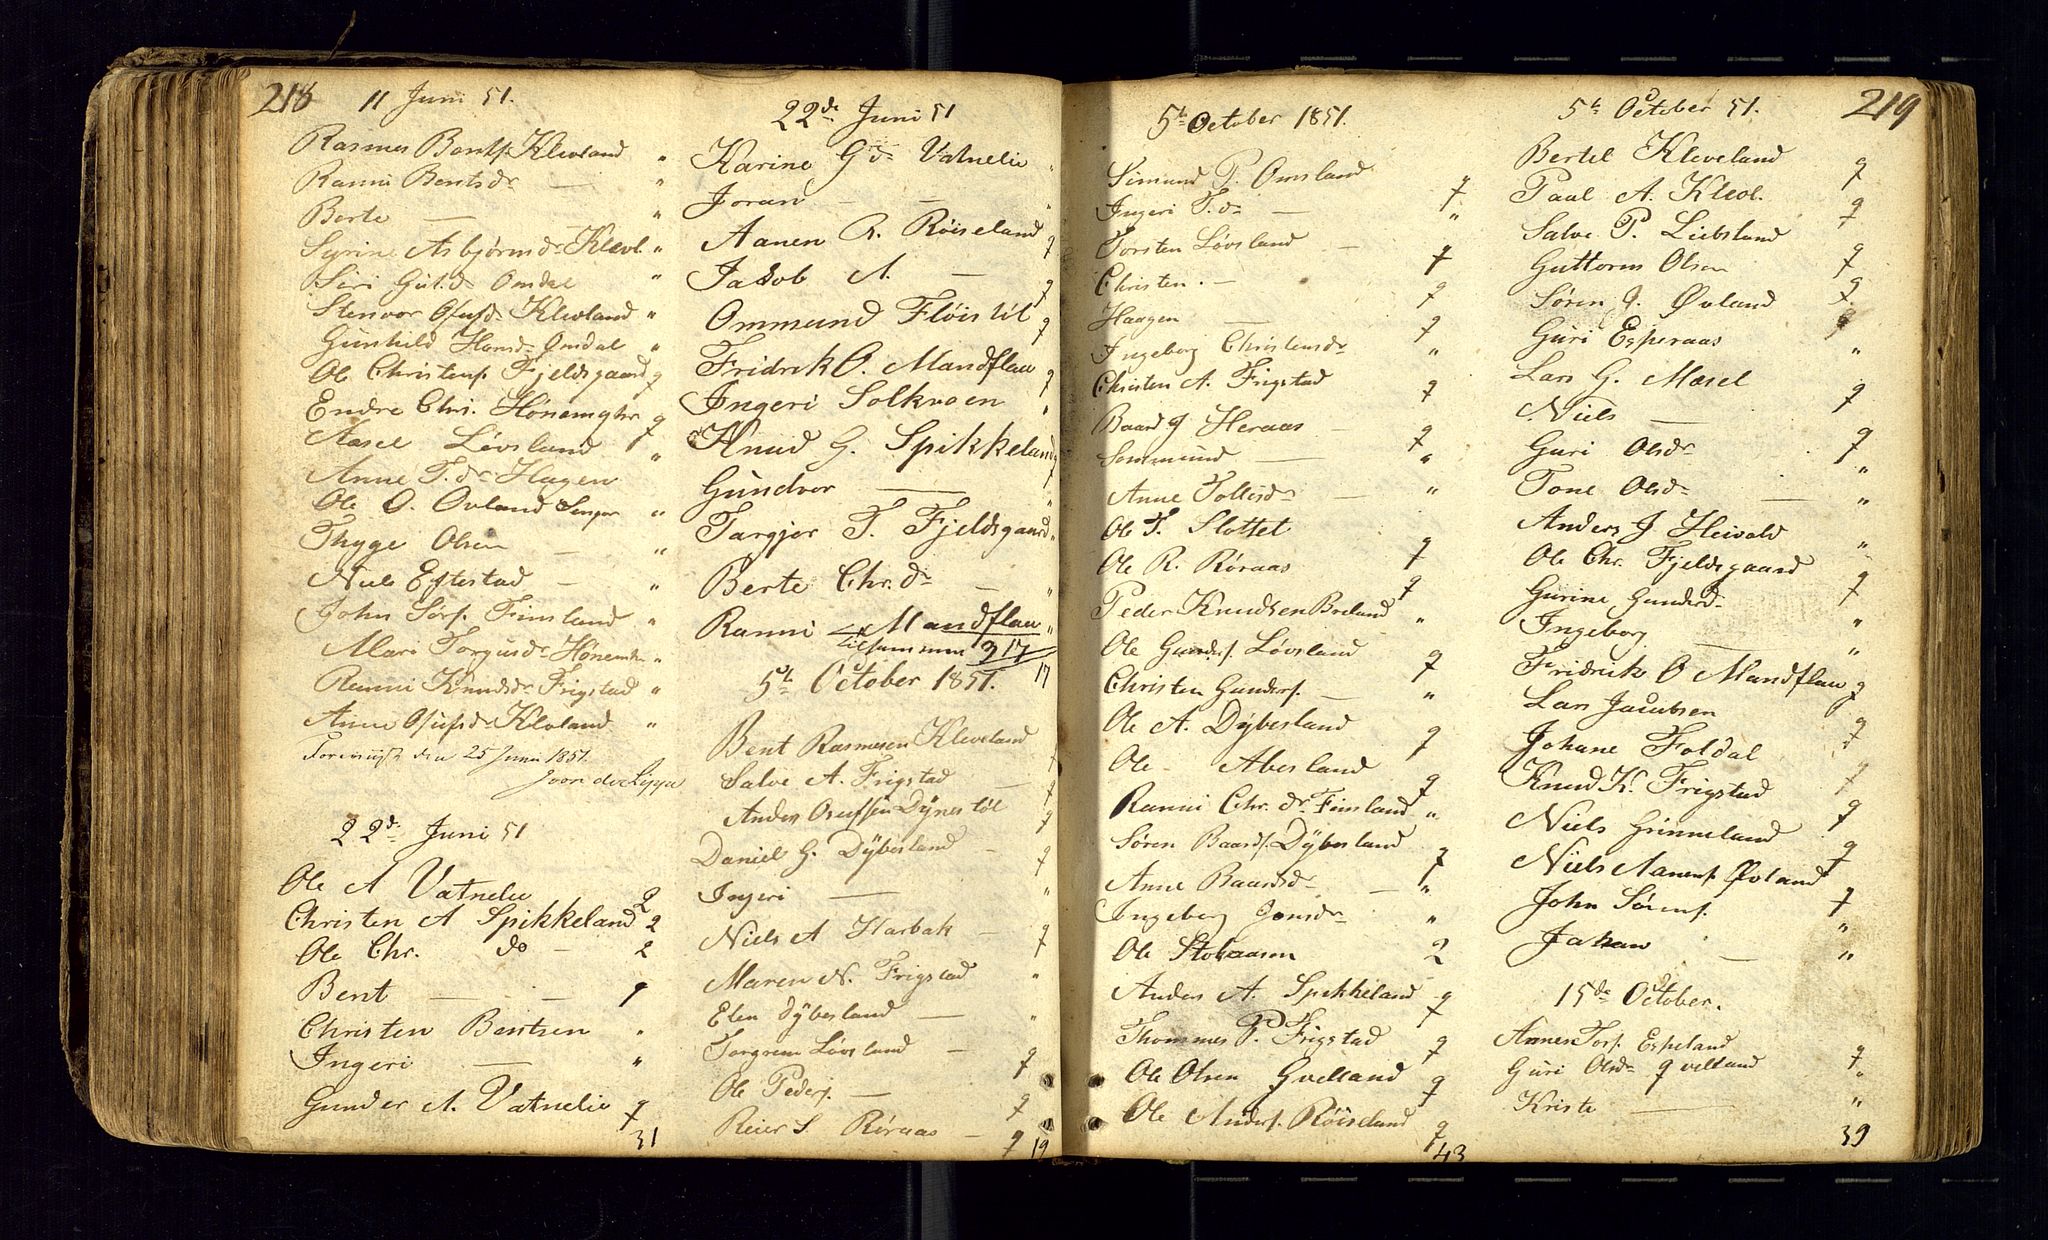 218
11 Juni 51.
Rasmus Bents. Klevland "
Ranni Bentsdr — "
Berte — "
Syrine Asbjørnsdr Klevl. "
Siri Gul.dr Omdal "
Stenvor Ofusdr Klevland "
Gunhild Hansdr Omdal "
Ole Christens. Fjeldsgaard 7
Endre Chr. Hønemyhr 7
Aasel Løvsland "
Anne T.dr Hagen
Ole O. Ovland "
Thyge Olsen — "
Niels Eftestad — "
John Sørs. Finsland "
Mari Torgusdr Hønemh "
Ranni Knudsdr Frigstad "
Anne Ofusdr Klevland "
den 25 Juni 1851.
22de Juni 51
Ole A Vatnelie 2
Christen A Spikkeland 2
Ole Chr. do — 2
Bent — — 7
Christen Bentsen "
Ingeri — "
Gunder A. Vatnelie 7
31
22de Juni 51
Karine G dr Vatnelie "
Joran — — "
Aanen R. Røiseland 7
Jakob A. — 7
Ommund Fløistøl 7
Fridrik O. Mandflau 7
Ingeri Solkvoen "
Knud G. Spikkeland 7
Gundvor — "
Targjer T. Fjeldsgaard "
Berte Chr.dr — "
Ranni — Mandflau "
tilsammen 317
17
5te October 1851.
Bent Rasmusen Kleveland 7
Salve A. Frigstad — 7
Anders Olufsen Dynestøl 7
Daniels G. Dÿbesland — 7
Ingeri — "
Niels A Harbak — 7
Maren N. Frigstad "
Elen Dÿbesland — "
Torgrem Løvsland — 7
Ole Peders. — 7
Reier S. Røraas — 7
19
5te October 1851.
Simund P. Omsland 7
Ingeri T.dr — "
Torsten Løvsland — 7
Christen. — 7
Haagen — 7
Ingeborg Christensdr "
Christen A. Frigstad 7
Baard J Heraas — 7
Sommund — "
Anne Tollisdr — "
Ole T. Slottet 7
Ole R. Røraas 7
Peder Knudsen Breland "
Ole Gunders. Løvsland 7
Christen Gunders. — "
Ole A. Dÿbesland 7
Ole - Abesland 7
Ranni Chr. dr Finsland "
Søren Baards. Dÿbesland 7
Anne Baardsdr — "
Ingeborg Jonsdr "
Ole Stokaasen 2
Anders A. Spikkeland 7
Thommes P. Frigstad 7
Ole Olsen Qvelland 7
Ole Anders. Røiseland 7
43
219
5te October 51.
Bertel Kleveland 7
Paal A. Klevl. 7
Salve P. Liebsland 7
Guttorm Olsen 7
Søren J. Øvland 7
Guri Esperaas "
Lars G. Mæsel 7
Niels — 7
Guri Olsdr "
Tone Olsdr — "
Anders J Heivold "
Ole Chr. Fjeldsgaard 7
Gurine Gundersdr "
Ingeborg — "
Fridrik O Mandflau 7
Lars Jacobsen 7
Johane Foldal 7
Knud K. Frigstad 7
Niels Grinneland 7
Niels Aanens. Øvland 7
John Sørens. "
Johan — "
15de October.
Annes Tors. Espeland 7
Guri Olsdr Qvelland "
Kriste — "
39